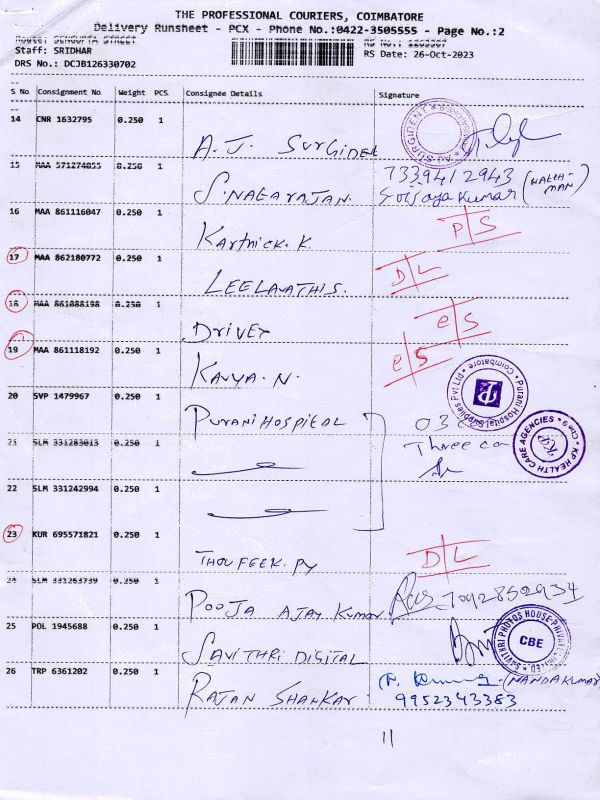 THE PROFESSIONAL COURIERS, COIMBATORE
Delivery Runsheet - PCX - Phone No.:0422-3505555 - Page No.:2
Route: SENGUPTA STREET
RS No.: 1263307
Staff: SRIDHAR
RS Date: 26-Oct-2023
DRS No.: DCJB126330702
S No Consignment No Weight PCS Consignee Details Signature
14 CNR 1632795 0.250 1
A.J. SURGIDENT
15 MAA 571274055 0.250 1
S. NAGARAJAN. 7339412943
16 MAA 861116047 0.250 1
KARTHICK. K. P/S
17 MAA 862180772 0.250 1
LEELAVATHI S. D/L
18 MAA 861088198 0.250 1
DRIVEX e/S
19 MAA 861118192 0.250 1
KAVYA. N. e/S
20 SVP 1479967 0.250 1
PURANI HOSPITAL 03
Purani Hospital Supplies Pvt Ltd * Coimbatore *
21 SLM 331283013 0.250 1
Three
KP HEALTH CARE AGENCIES * CBE-9 *
KP
22 SLM 331242994 0.250 1
23 KUR 695571821 0.250 1
THOUFEEK. PY D/L
24 SLM 331263739 0.250 1
POOJA AJAY KUMAR
25 POL 1945688 0.250 1
SAVITHRI DIGITAL
SAVITHRI PHOTOS HOUSE PRIVATE LIMITED
CBE
26 TRP 6361202 0.250 1
RAJAN SHANKAR (NANDAKUMAR)
9952343383
11